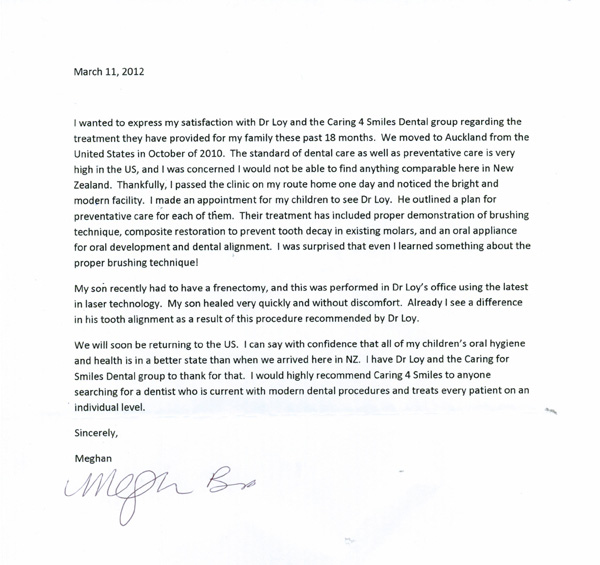 March 11, 2012
I wanted to express my satisfaction with Dr Loy and the Caring 4 Smiles Dental group regarding the
treatment they have provided for my family these past 18 months. We moved to Auckland from the
United States in October of 2010. The standard of dental care as well as preventative care is very
high in the US, and I was concerned I would not be able to find anything comparable here in New
Zealand. Thankfully, I passed the clinic on my route home one day and noticed the bright and
modern facility. I made an appointment for my children to see Dr Loy. He outlined a plan for
preventative care for each of them. Their treatment has included proper demonstration of brushing
technique, composite restoration to prevent tooth decay in existing molars, and an oral appliance
for oral development and dental alignment. I was surprised that even I learned something about the
proper brushing technique!
My son recently had to have a frenectomy, and this was performed in Dr Loy's office using the latest
in laser technology. My son healed very quickly and without discomfort. Already I see a difference
in his tooth alignment as a result of this procedure recommended by Dr Loy.
We will soon be returning to the US. I can say with confidence that all of my children's oral hygiene
and health is in a better state than when we arrived here in NZ. I have Dr Loy and the Caring for
Smiles Dental group to thank for that. I would highly recommend Caring 4 Smiles to anyone
searching for a dentist who is current with modern dental procedures and treats every patient on an
individual level.
Sincerely,
Meghan